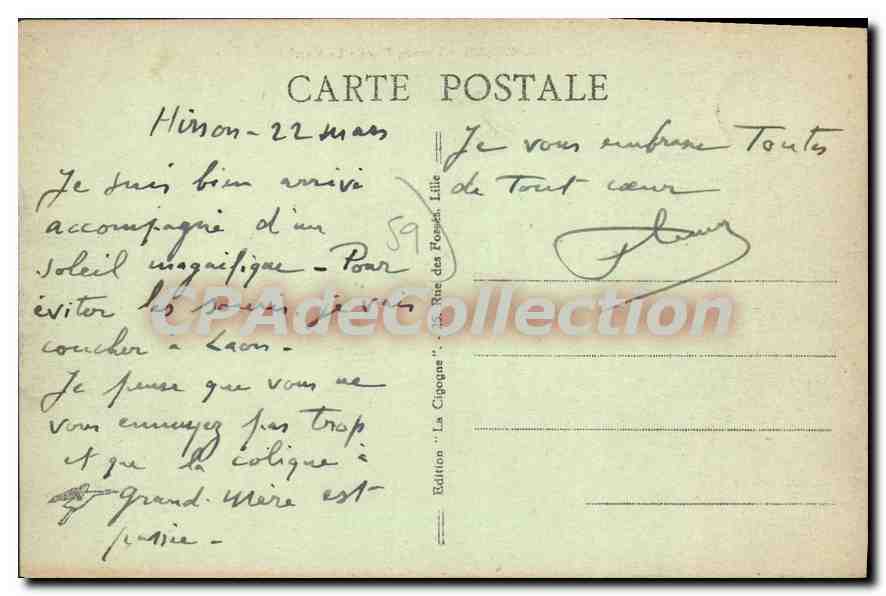 CARTE POSTALE
Hirson - 22 mars
Je suis bien arrivé
accompagné d'un
soleil magnifique - Pour
éviter les je vais
coucher à Laon -
Je pense que vous ne
vous ennuyez pas trop
et que la colique à
Grand-Mère est
passée -
59
Edition "La Cigogne". - 25, Rue des Fossés, Lille
Je vous embrasse Toutes
de Tout cœur
CPAdeCollection